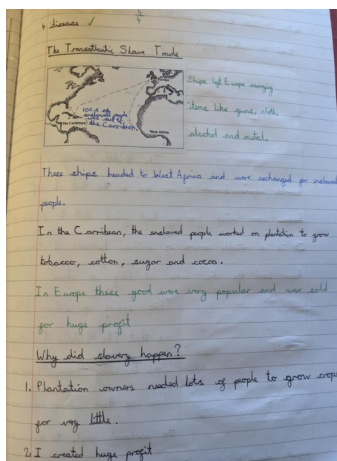 ↳ disease ✓
The Transatlantic Slave Trade
Ships left Europe carrying
items like guns, cloth,
alcohol and metal.
The Carribean
West Africa
the Carribean.
These ships headed to West Africa and were exchanged for enslaved
people.
In the Carribean, the enslaved people worked on plantation to grow
tobacco, cotton, sugar and cocoa.
In Europe these good were very popular and were sold
for huge profit
Why did slavery happen?
1. Plantation owners needed lots of people to grow crops
for very little.
2. I created huge profit